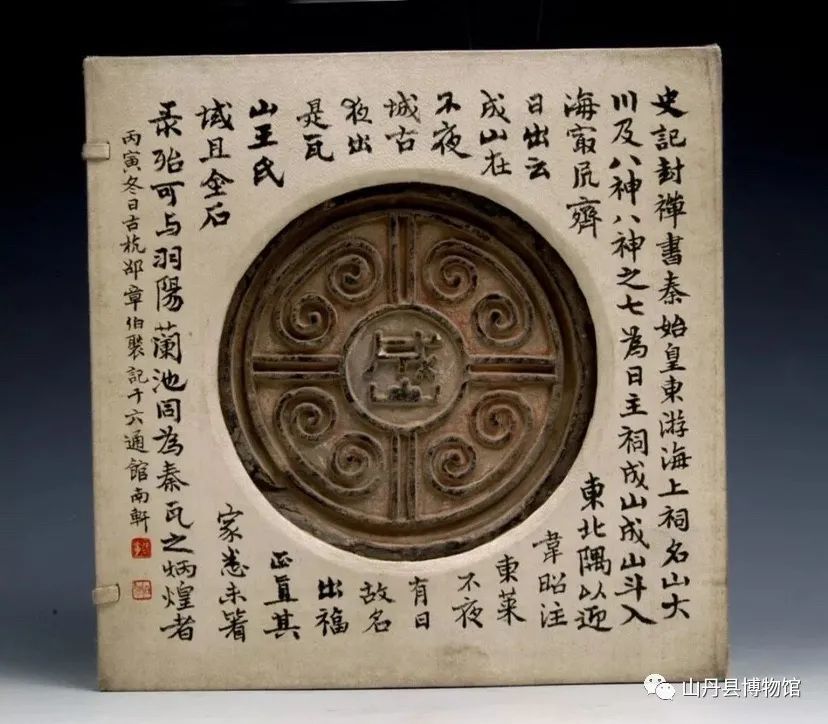 史記封禪書秦始皇東游海上祠名山大
川及八神八神之七為日主祠成山成山斗入
海冣凥齊東北隅以迎
日出云韋昭注
成山在東萊
不夜不夜
城古有日
夜出故名
是瓦出福
山王氏正直其
域且金石家悉未箸
录殆可与羽陽蘭池同為秦瓦之炳煌者
丙寅冬日古杭邵章伯褧記于六通館南軒
成山
山丹县博物馆